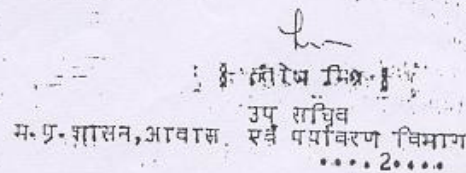 उप सचिव
म.प्र.शासन,आवास एवं पर्यावरण विभाग
....2....